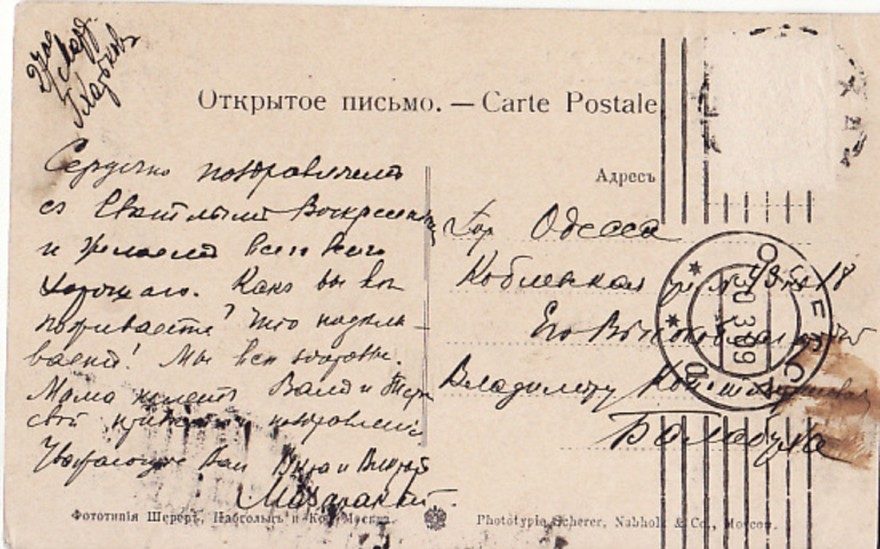 27го
Март
г Харьковъ
Открытое письмо. — Carte Postale.
Адресъ
Сердечно поздравляемъ
съ Свѣтлымъ Воскресеньемъ
и желаемъ всего всего
хорошаго. Какъ вы
поживаете? Что подѣлы-
ваете! Мы всѣ здоровы.
Мама шлетъ Валѣ и
свой привѣтъ и поздравленіе
Уважающіе Вас и
гор Одесса
Коблевская ул 18
Его Высокоблагородію
Владиміру Константиновичу
ОДЕССА
30 3 09
Фототипія Шереръ, Набгольцъ и Ко., Москва.
Phototypie Scherer, Nabholz & Co., Moscou.